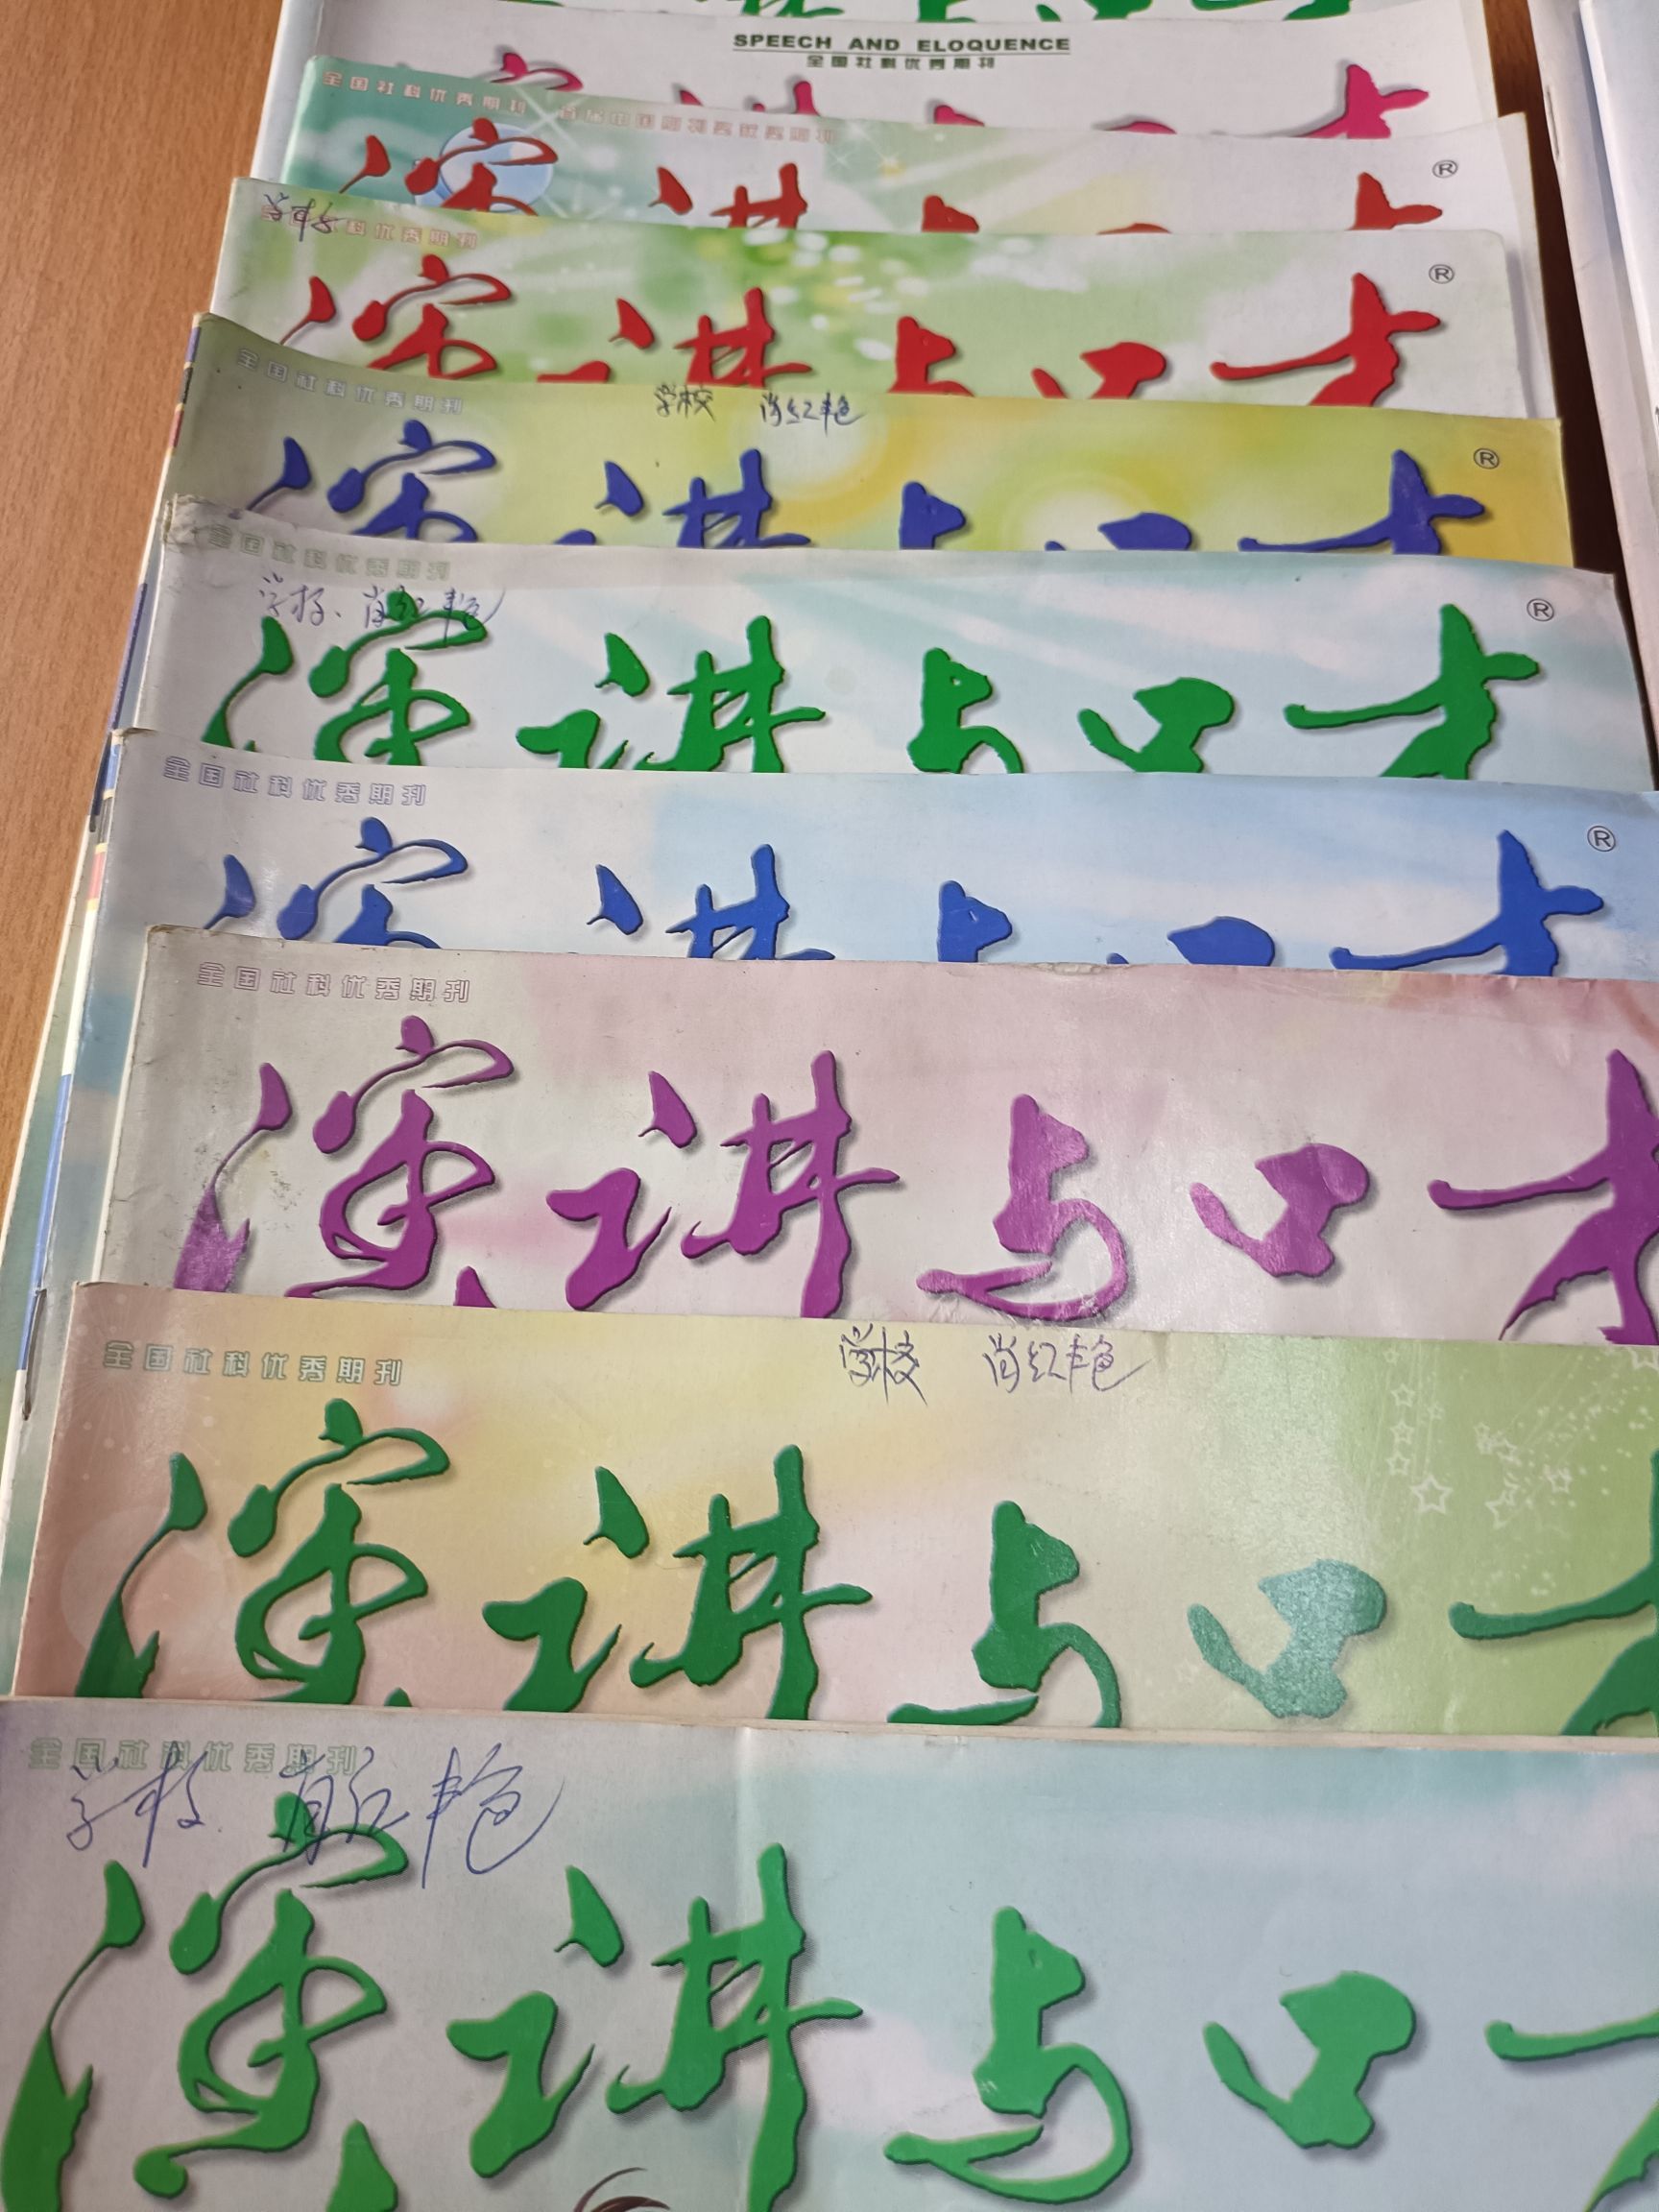 SPEECH AND ELOQUENCE
全国社科优秀期刊
演讲与口才
全国社科优秀期刊
演讲与口才
®
学校
科优秀期刊
演讲与口才
®
全国社科优秀期刊
学校 肖红艳
演讲与口才
®
全国社科优秀期刊
学校、肖红艳
演讲与口才
®
全国社科优秀期刊
演讲与口才
®
全国社科优秀期刊
演讲与口才
全国社科优秀期刊
学校 肖红艳
演讲与口才
全国社科优秀期刊
学校 肖红艳
演讲与口才